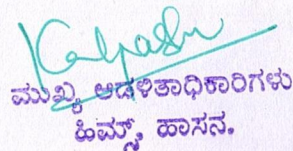 ಮುಖ್ಯ ಆಡಳಿತಾಧಿಕಾರಿಗಳು
ಹಿಮ್ಸ್, ಹಾಸನ.